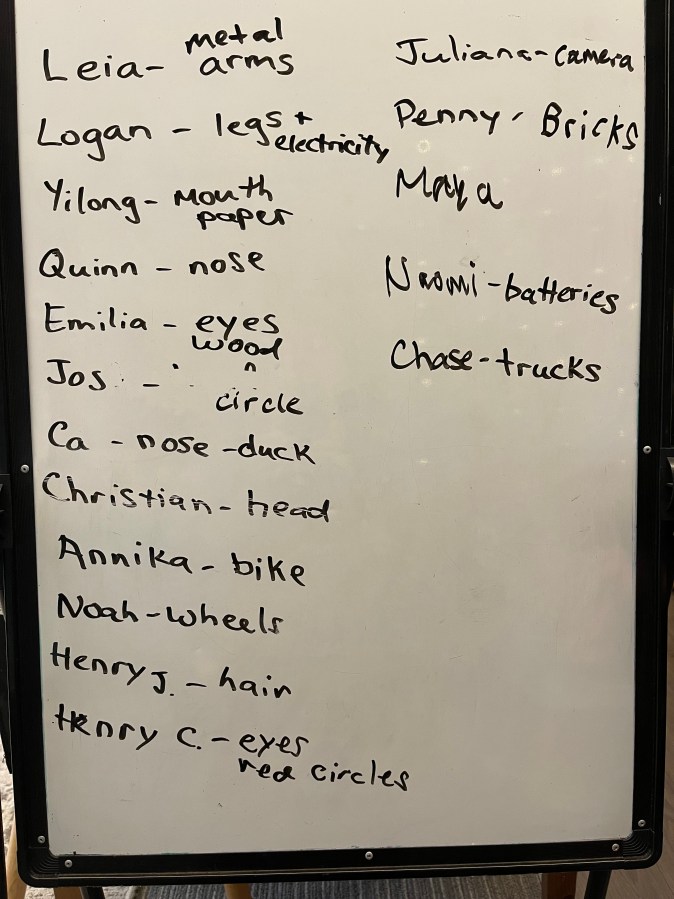 Leia - metal
arms
Logan - legs +
electricity
Yilong - mouth
paper
Quinn - nose
Emilia - eyes
wood
Jos -
circle
Ca - nose - duck
Christian - head
Annika - bike
Noah - wheels
Henry J. - hair
Henry C. - eyes
red circles
Juliana - camera
Penny - Bricks
Maya
Naomi - batteries
Chase - trucks